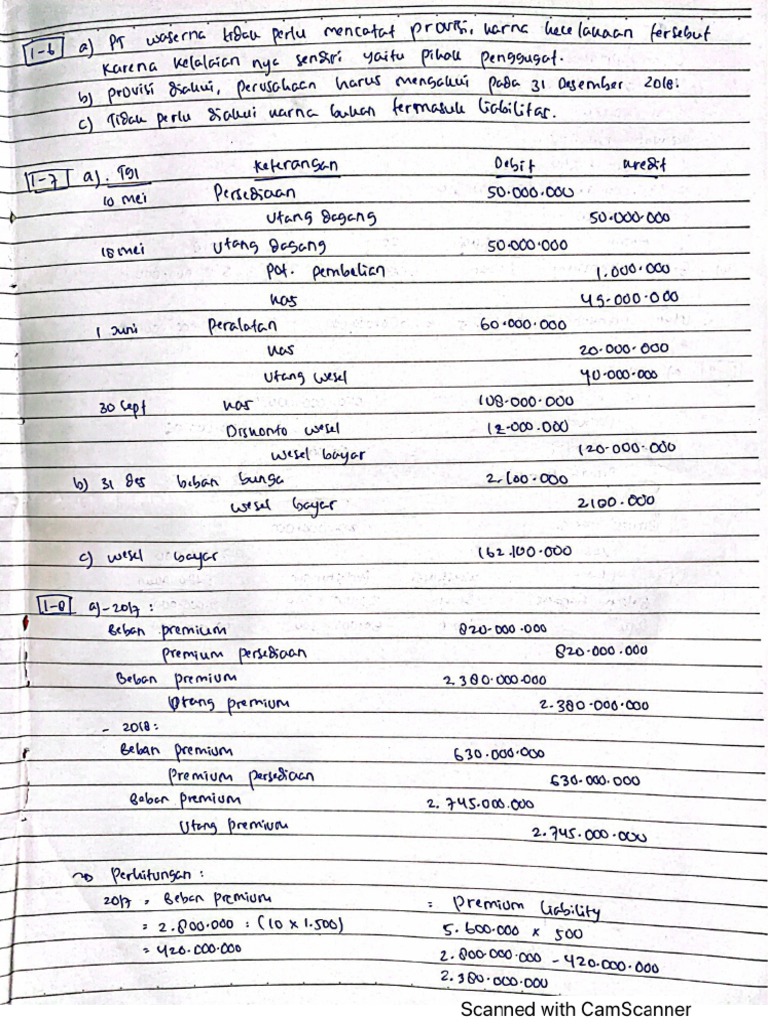 1-6 a) PT waserna tidak perlu mencatat provisi, karna kecelakaan tersebut
karena kelalaian nya sendiri yaitu pihak penggugat.
b) provisi diakui, perusahaan harus mengakui pada 31 Desember 2018.
c) Tidak perlu diakui karna bukan termasuk liabilitas.
1-7 a). Tgl Keterangan Debit kredit
10 mei Persediaan 50.000.000
Utang dagang 50.000.000
18 mei Utang dagang 50.000.000
Pot. pembelian 1.000.000
kas 49.000.000
1 Juni Peralatan 60.000.000
kas 20.000.000
Utang wesel 40.000.000
30 Sept kas 108.000.000
Diskonto wesel 12.000.000
wesel bayar 120.000.000
b) 31 des beban bunga 2.100.000
wesel bayar 2100.000
c) wesel bayar 162.100.000
1-8 a) - 2017 :
Beban premium 820.000.000
Premium persediaan 820.000.000
Beban premium 2.380.000.000
Utang premium 2.380.000.000
- 2018:
Beban premium 630.000.000
Premium persediaan 630.000.000
Beban premium 2.745.000.000
Utang premium 2.745.000.000
~> Perhitungan :
2017 = Beban premium : Premium liability
= 2.800.000 : (10 x 1.500) 5.600.000 x 500
= 420.000.000 2.800.000.000 - 420.000.000
2.380.000.000
Scanned with CamScanner